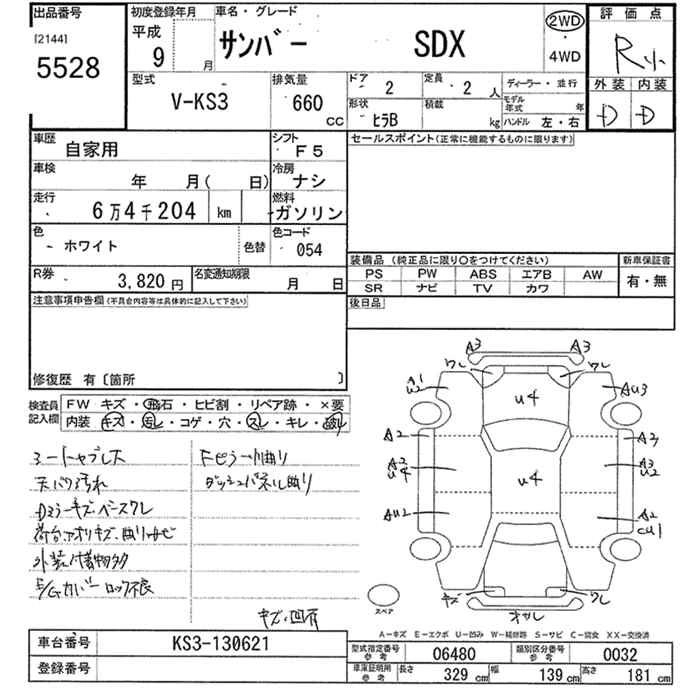 出品番号
[2144]
5528
初度登録年月
平成
9 月
車名・グレード
サンバー SDX
2WD
・
4WD
評価点
R
外装 内装
D D
型式
V-KS3
排気量
660 CC
ドア 2
定員 2 人
形状 ヒラB
積載 kg
ディーラー・並行
モデル年式 年
ハンドル 左・右
車歴 自家用
シフト F5
車検 年 月( 日)
冷房 ナシ
走行 6万4千204 km
燃料 ガソリン
色 ホワイト
色替
色コード 054
R券 3,820円
名変通知期限 月 日
セールスポイント(正常に機能するものに限ります)
装備品 (純正品に限り○をつけてください)
PS PW ABS エアB AW
SR ナビ TV カワ
新車保証書
有・無
後日品
注意事項申告欄(不具合内容等は具体的に記入して下さい)
修復歴 有〔箇所 〕
検査員記入欄
FW キズ・飛石・ヒビ割・リペア跡・×要
内装 キズ・汚レ・コゲ・穴・スレ・キレ・破レ
シートヤブレ大
天バリ汚れ
Dミラーキズ・ベースワレ
荷台アオリキズ・曲りサビ
外装付着物多
E/Gカバーロック不良
Fピラー曲り
ダッシュパネル曲り
キズ・凹有
A3 A3
ワレ ワレ
u4
Au3
A2
A3
A3
u4
u4
A3
u2
Au2
A2
cu1
キズ
ワレ
スペア
A-キズ E-エクボ U-凹み W-補修跡 S-サビ C-腐食 XX-交換済
車台番号 KS3-130621
登録番号
型式指定番号 参考 06480
類別区分番号 参考 0032
車庫証明用 参考 長さ 329 cm 幅 139 cm 高さ 181 cm